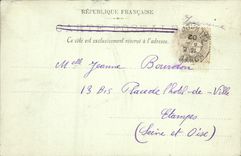 RÉPUBLIQUE FRANÇAISE
Ce côté est exclusivement réservé à l'adresse.
Mlle Jeanne Bourdon
13 Bis Place de l'hôtel-de-Ville
Etampes
(Seine et Oise)